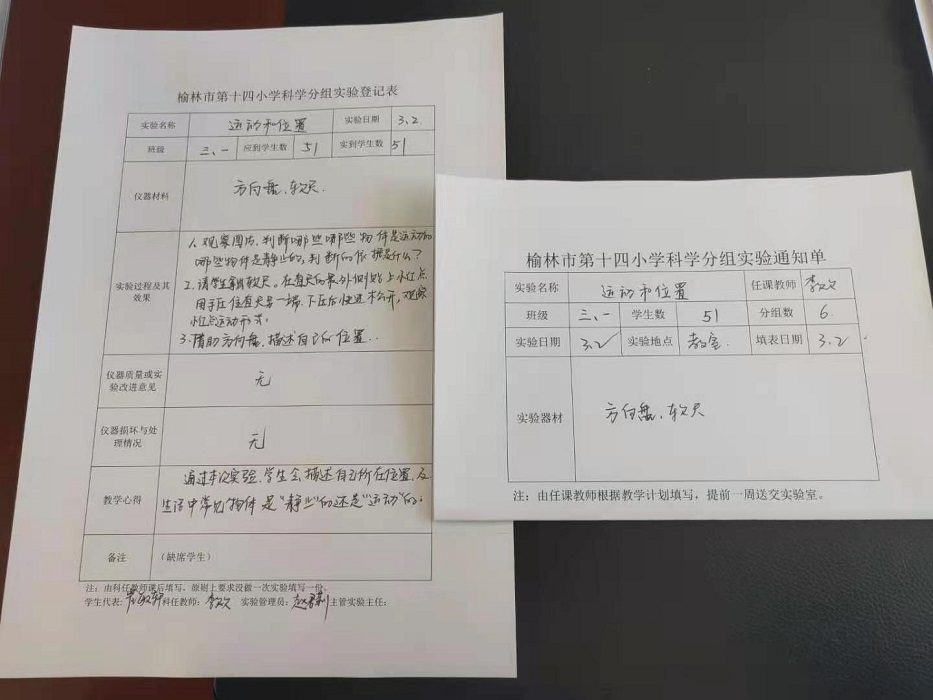 榆林市第十四小学科学分组实验登记表
实验名称 运动和位置 实验日期 3.2.
班级 三、一 应到学生数 51 实到学生数 51
仪器材料 方向盘、软尺.
实验过程及其效果
1、观察图片、判断哪些哪些物件是运动的
哪些物件是静止的,判断的依据是什么?
2、请学生拿软尺。在直尺的最外侧贴上小红点
用手压住直尺另一端,下压后快速松开,观察
小红点运动形式。
3、借助方向盘,描述自己的位置..
仪器质量或实验改进意见 无
仪器损坏与处理情况 无
教学心得
通过本次实验、学生会描述自己所在位置、及
生活中常见物件是“静止”的还是“运动”的。
备注 (缺席学生)
注:由科任教师课后填写,原则上要求没做一次实验填写一份。
学生代表: 科任教师: 实验管理员: 主管实验主任:
榆林市第十四小学科学分组实验通知单
实验名称 运动和位置 任课教师
班级 三、一 学生数 51 分组数 6.
实验日期 3.2 实验地点 教室. 填表日期 3.2
实验器材 方向盘、软尺
注:由任课教师根据教学计划填写,提前一周送交实验室。